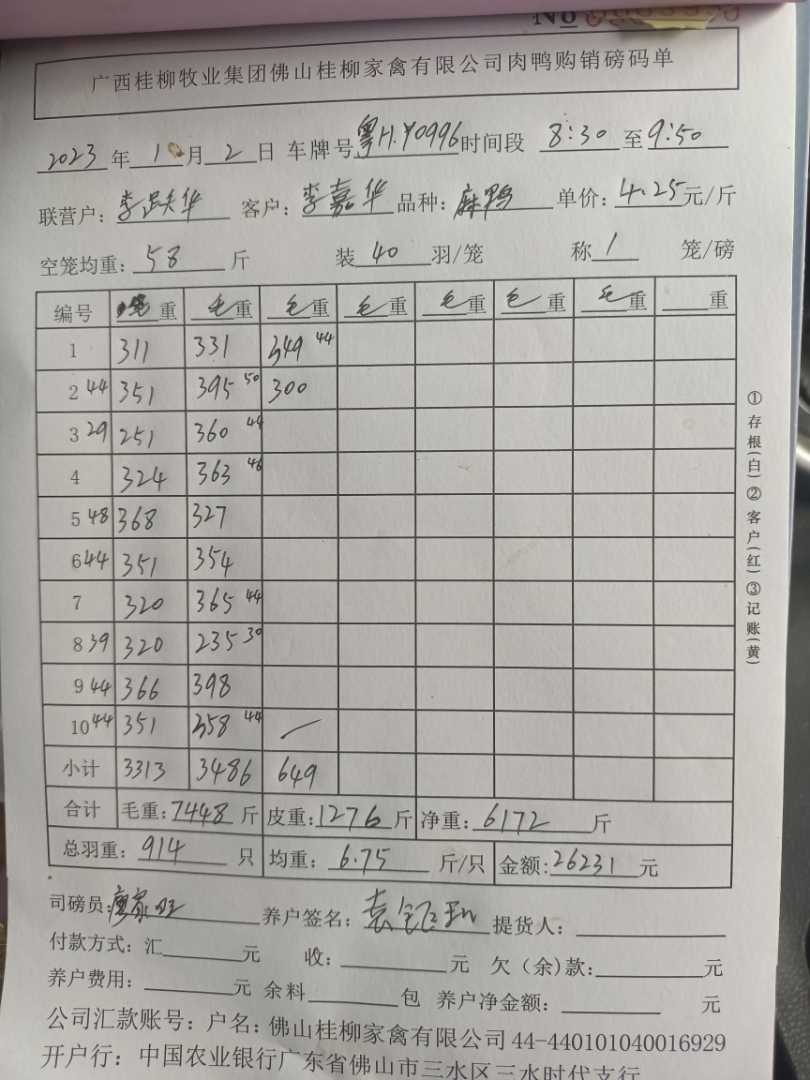 No
广西桂柳牧业集团佛山桂柳家禽有限公司肉鸭购销磅码单
2023 年 10 月 2 日 车牌号 粤H.Y0996 时间段 8:30 至 9:50
联营户: 李跃华 客户: 李嘉华 品种: 麻鸭 单价: 4.25 元/斤
空笼均重: 58 斤 装 40 羽/笼 称 1 笼/磅
编号 毛重 毛重 毛重 毛重 毛重 毛重 毛重 重
1 311 331 349 44
2 44 351 395 50 300
3 29 251 360 44
4 324 363 46
5 48 368 327
6 44 351 354
7 320 365 44
8 39 320 235 30
9 44 366 398
10 44 351 358 44 —
小计 3313 3486 649
合计 毛重: 7448 斤 皮重: 1276 斤 净重: 6172 斤
总羽重: 914 只 均重: 6.75 斤/只 金额: 26231 元
司磅员: 养户签名: 袁 提货人:
付款方式: 汇 元 收: 元 欠(余)款: 元
养户费用: 元 余料 包 养户净金额: 元
公司汇款账号: 户名: 佛山桂柳家禽有限公司 44-440101040016929
开户行: 中国农业银行广东省佛山市三水区三水时代支行
①存根(白)②客户(红)③记账(黄)